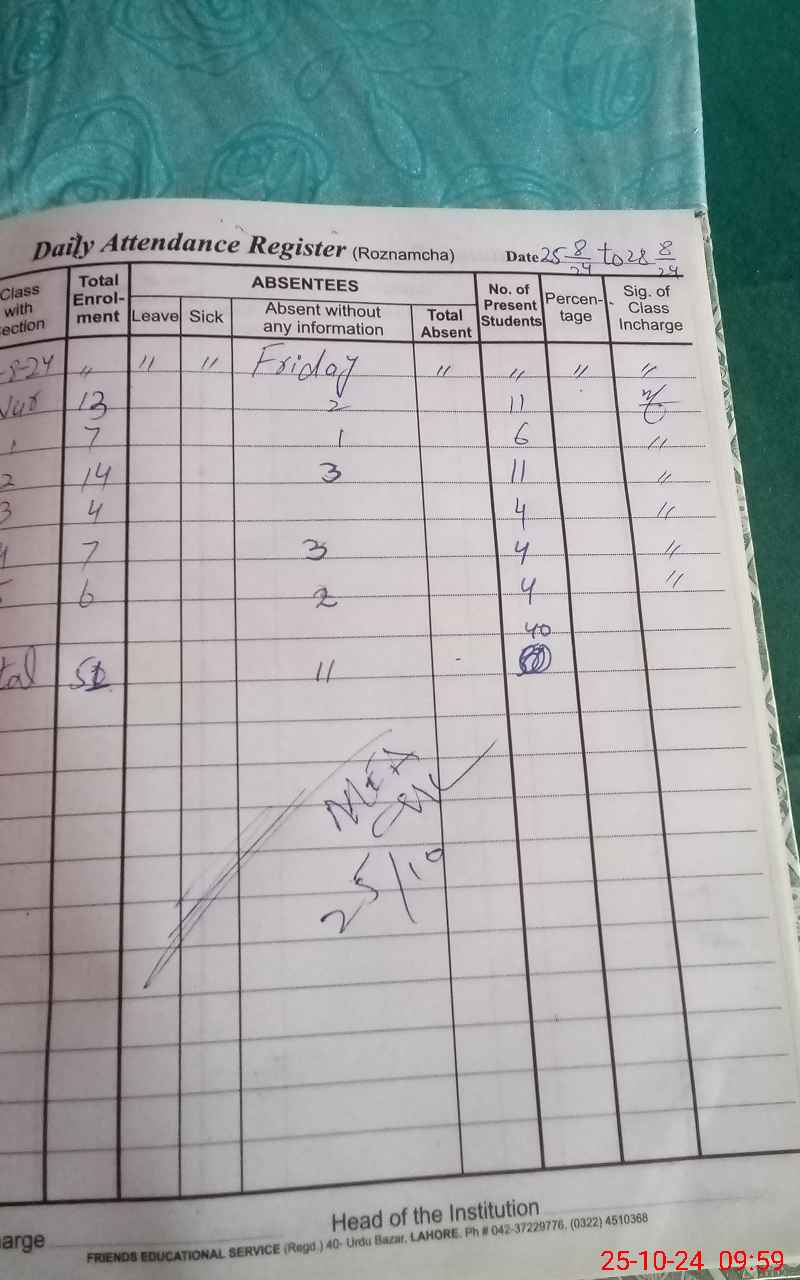 Daily Attendance Register (Roznamcha) Date 25 8/24 to 28 8/24
Class with ection Total Enrol-ment ABSENTEES No. of Present Students Percen-tage Sig. of Class Incharge
Leave Sick Absent without any information Total Absent
-8-24 " " " Friday " " " "
Nur 13 2 11
1 7 1 6 "
2 14 3 11 "
3 4 4 "
4 7 3 4 "
5 6 2 4 "
40
tal 51 11
MEA
25/10
arge Head of the Institution
FRIENDS EDUCATIONAL SERVICE (Regd.) 40- Urdu Bazar, LAHORE. Ph # 042-37229776, (0322) 4510368
25-10-24 09:59